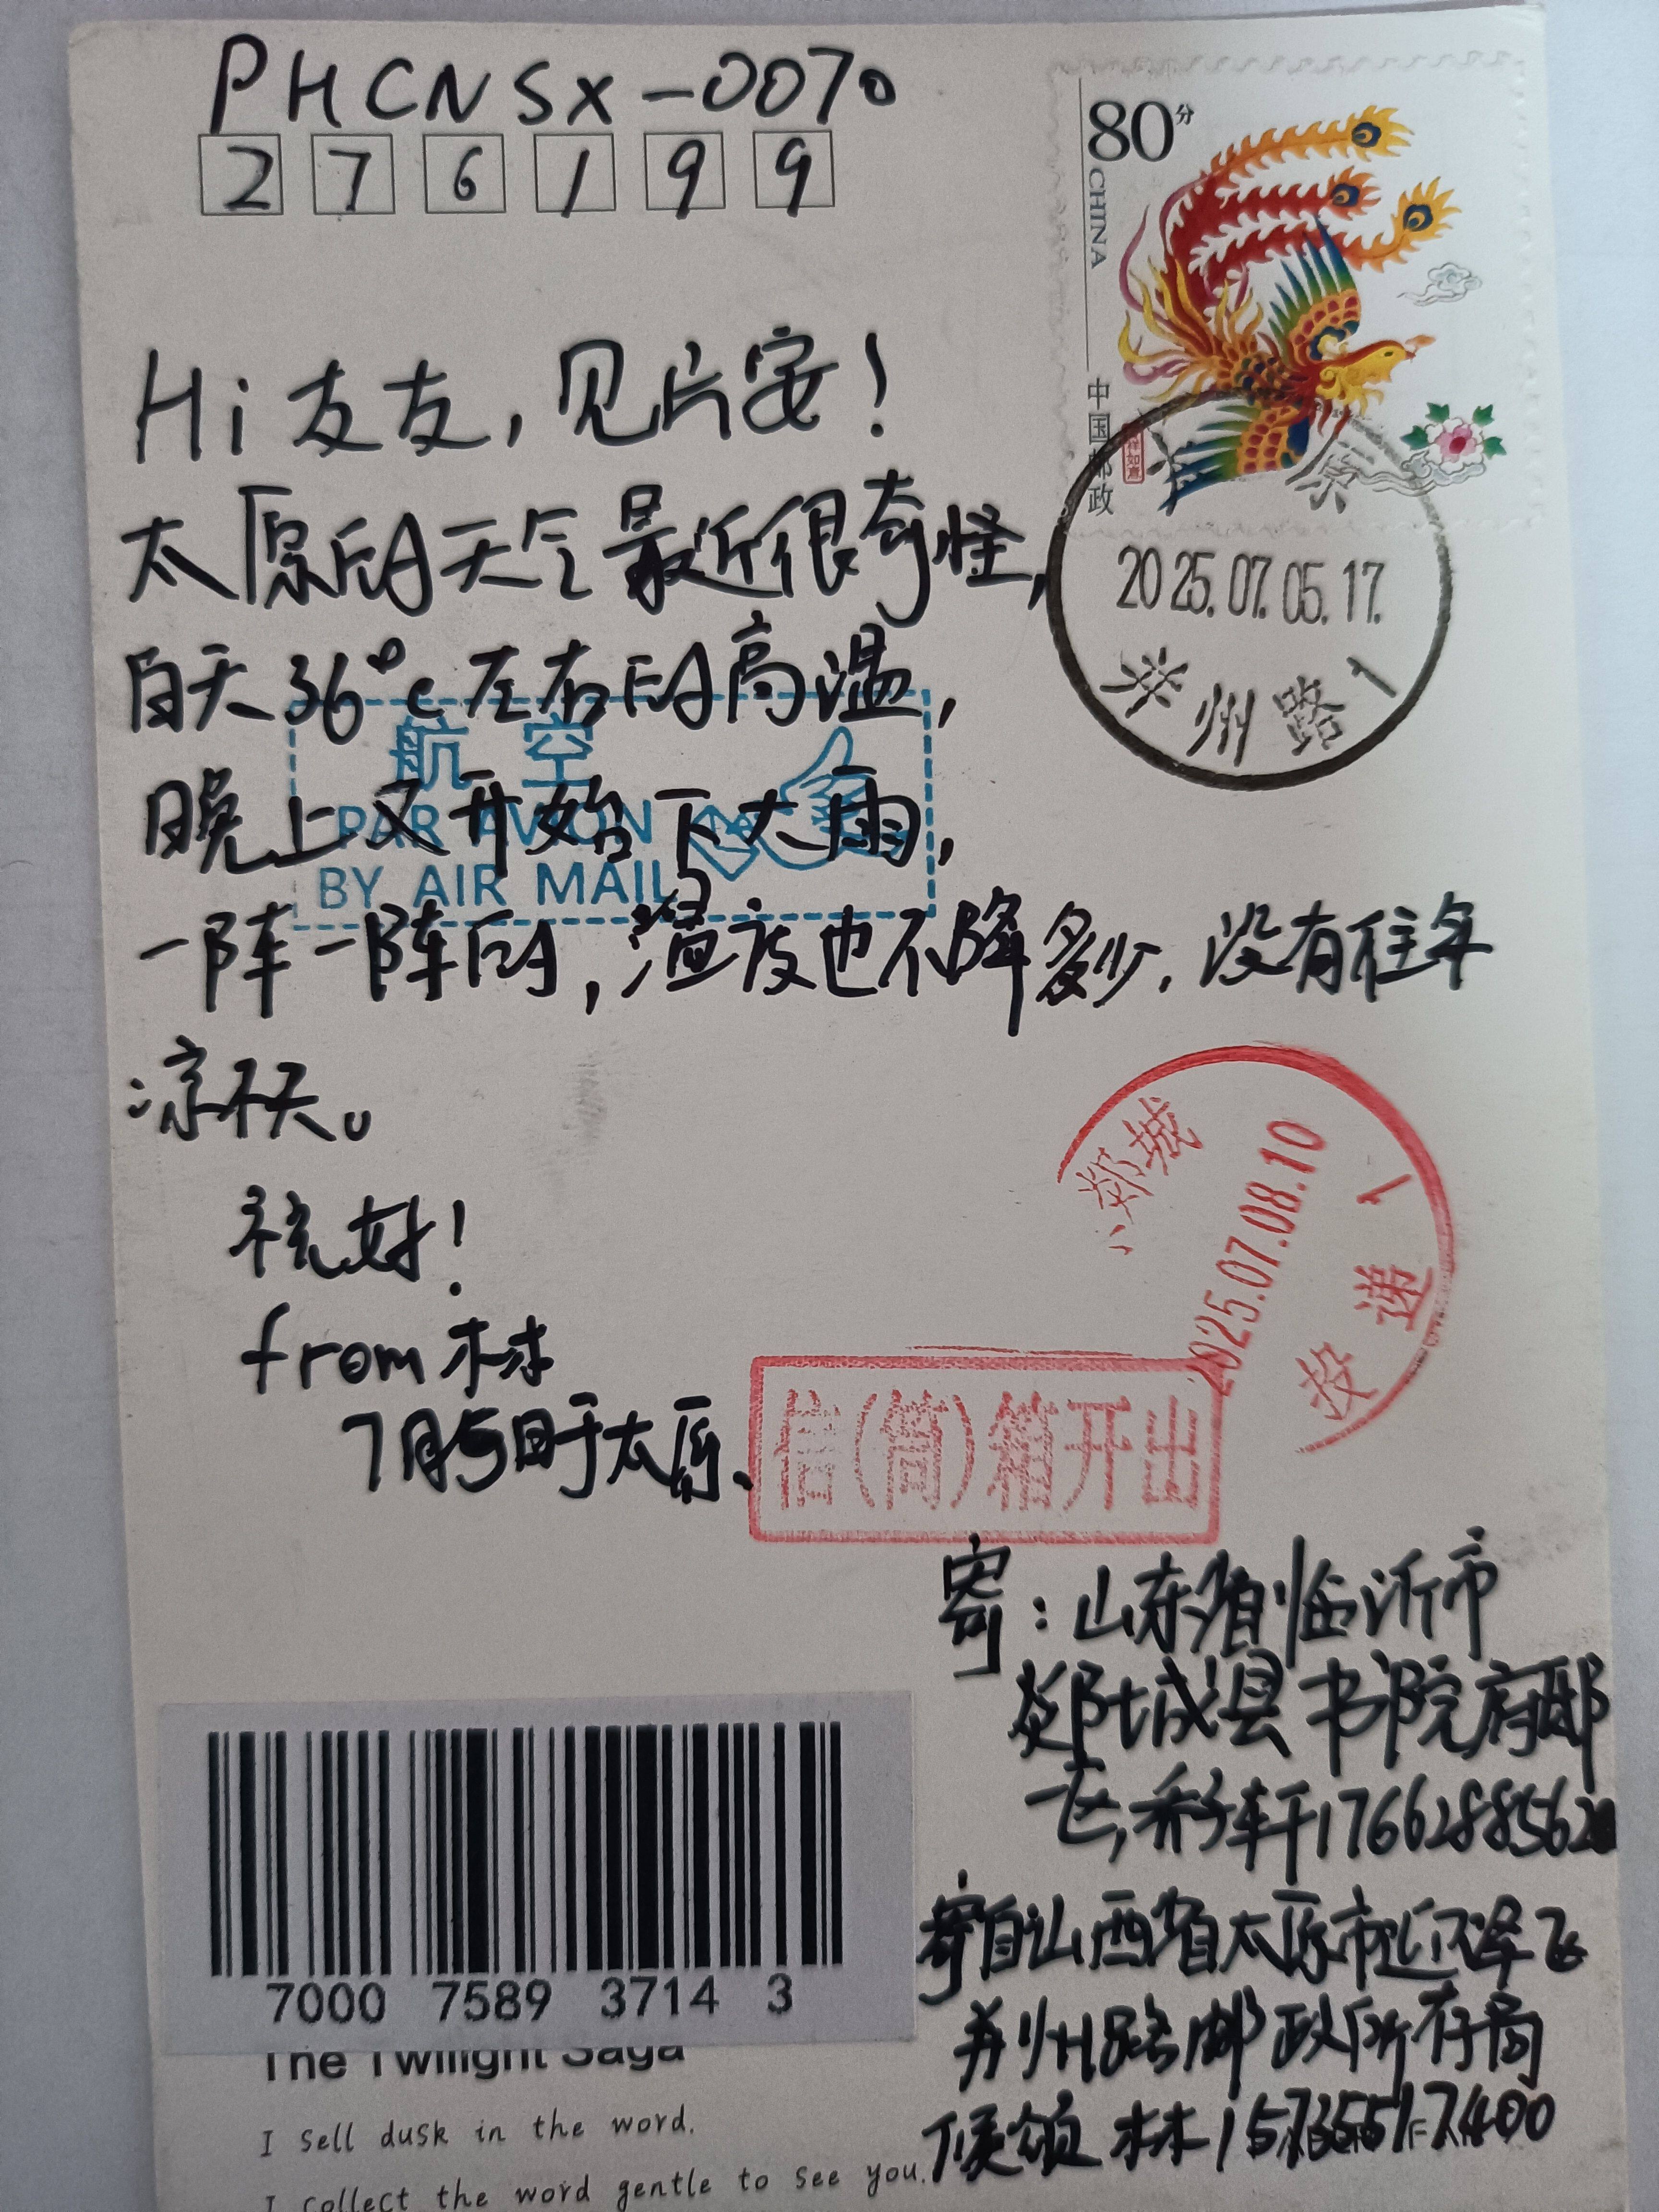 PHCNSX-0070
276199
80分
CHINA
中国邮政
Hi 友友，见片安！
太原的天气最近很奇怪，
白天36℃左右的高温，
晚上又开始下大雨，
一阵一阵的，温度也不降多少，没有往年
凉天。
祝好！
from 林
7月5日于太原、
航空
PAR AVION
BY AIR MAIL
原
2025.07.05.17.
并州路1
郯城
2025.07.08.10
投递1
信(筒)箱开出
寄：山东省临沂市
郯城县书院府邸
乔子轩17662885620
寄自山西省太原市迎泽区
并州路邮政所存局
候领 林 15735517400
7000 7589 3714 3
The Twilight Saga
I sell dusk in the word.
I collect the word gentle to see you.